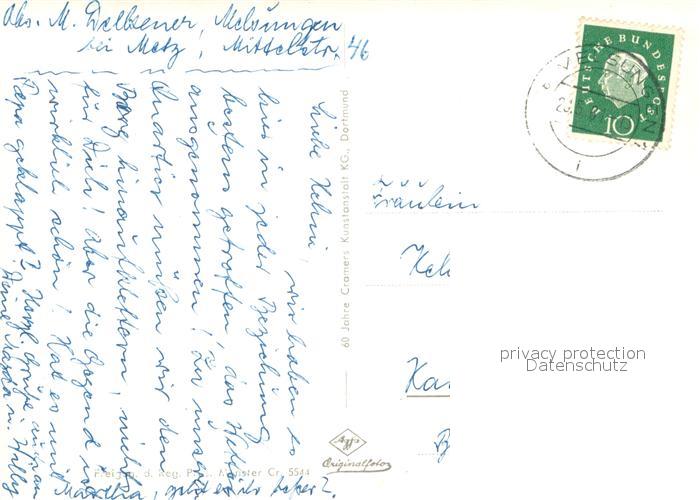 Abs. M. Dellsener, Melsungen
bei Metz, Mittelstr. 46
Liebe Helmi, wir haben es
hier in jeder Beziehung
bestens getroffen, das Wetter
ausgenommen! Zu unserem
Quartier müßen wir den
Berg hinaufklettern, nichts
für Dich! Aber die Gegend ist
wirklich schön! Hat es mit
Papa geklappt? Herzl. Grüße
Deine Martha u. Willy
Martha, geht es ihr besser?
60 Jahre Cramers Kunstanstalt KG., Dortmund
Agfa
Originalfoto
Freigeg. d. Reg. Präs. Münster Cr. 5544
DEUTSCHE BUNDESPOST
10
MELSUNGEN
Fräulein
privacy protection
Datenschutz